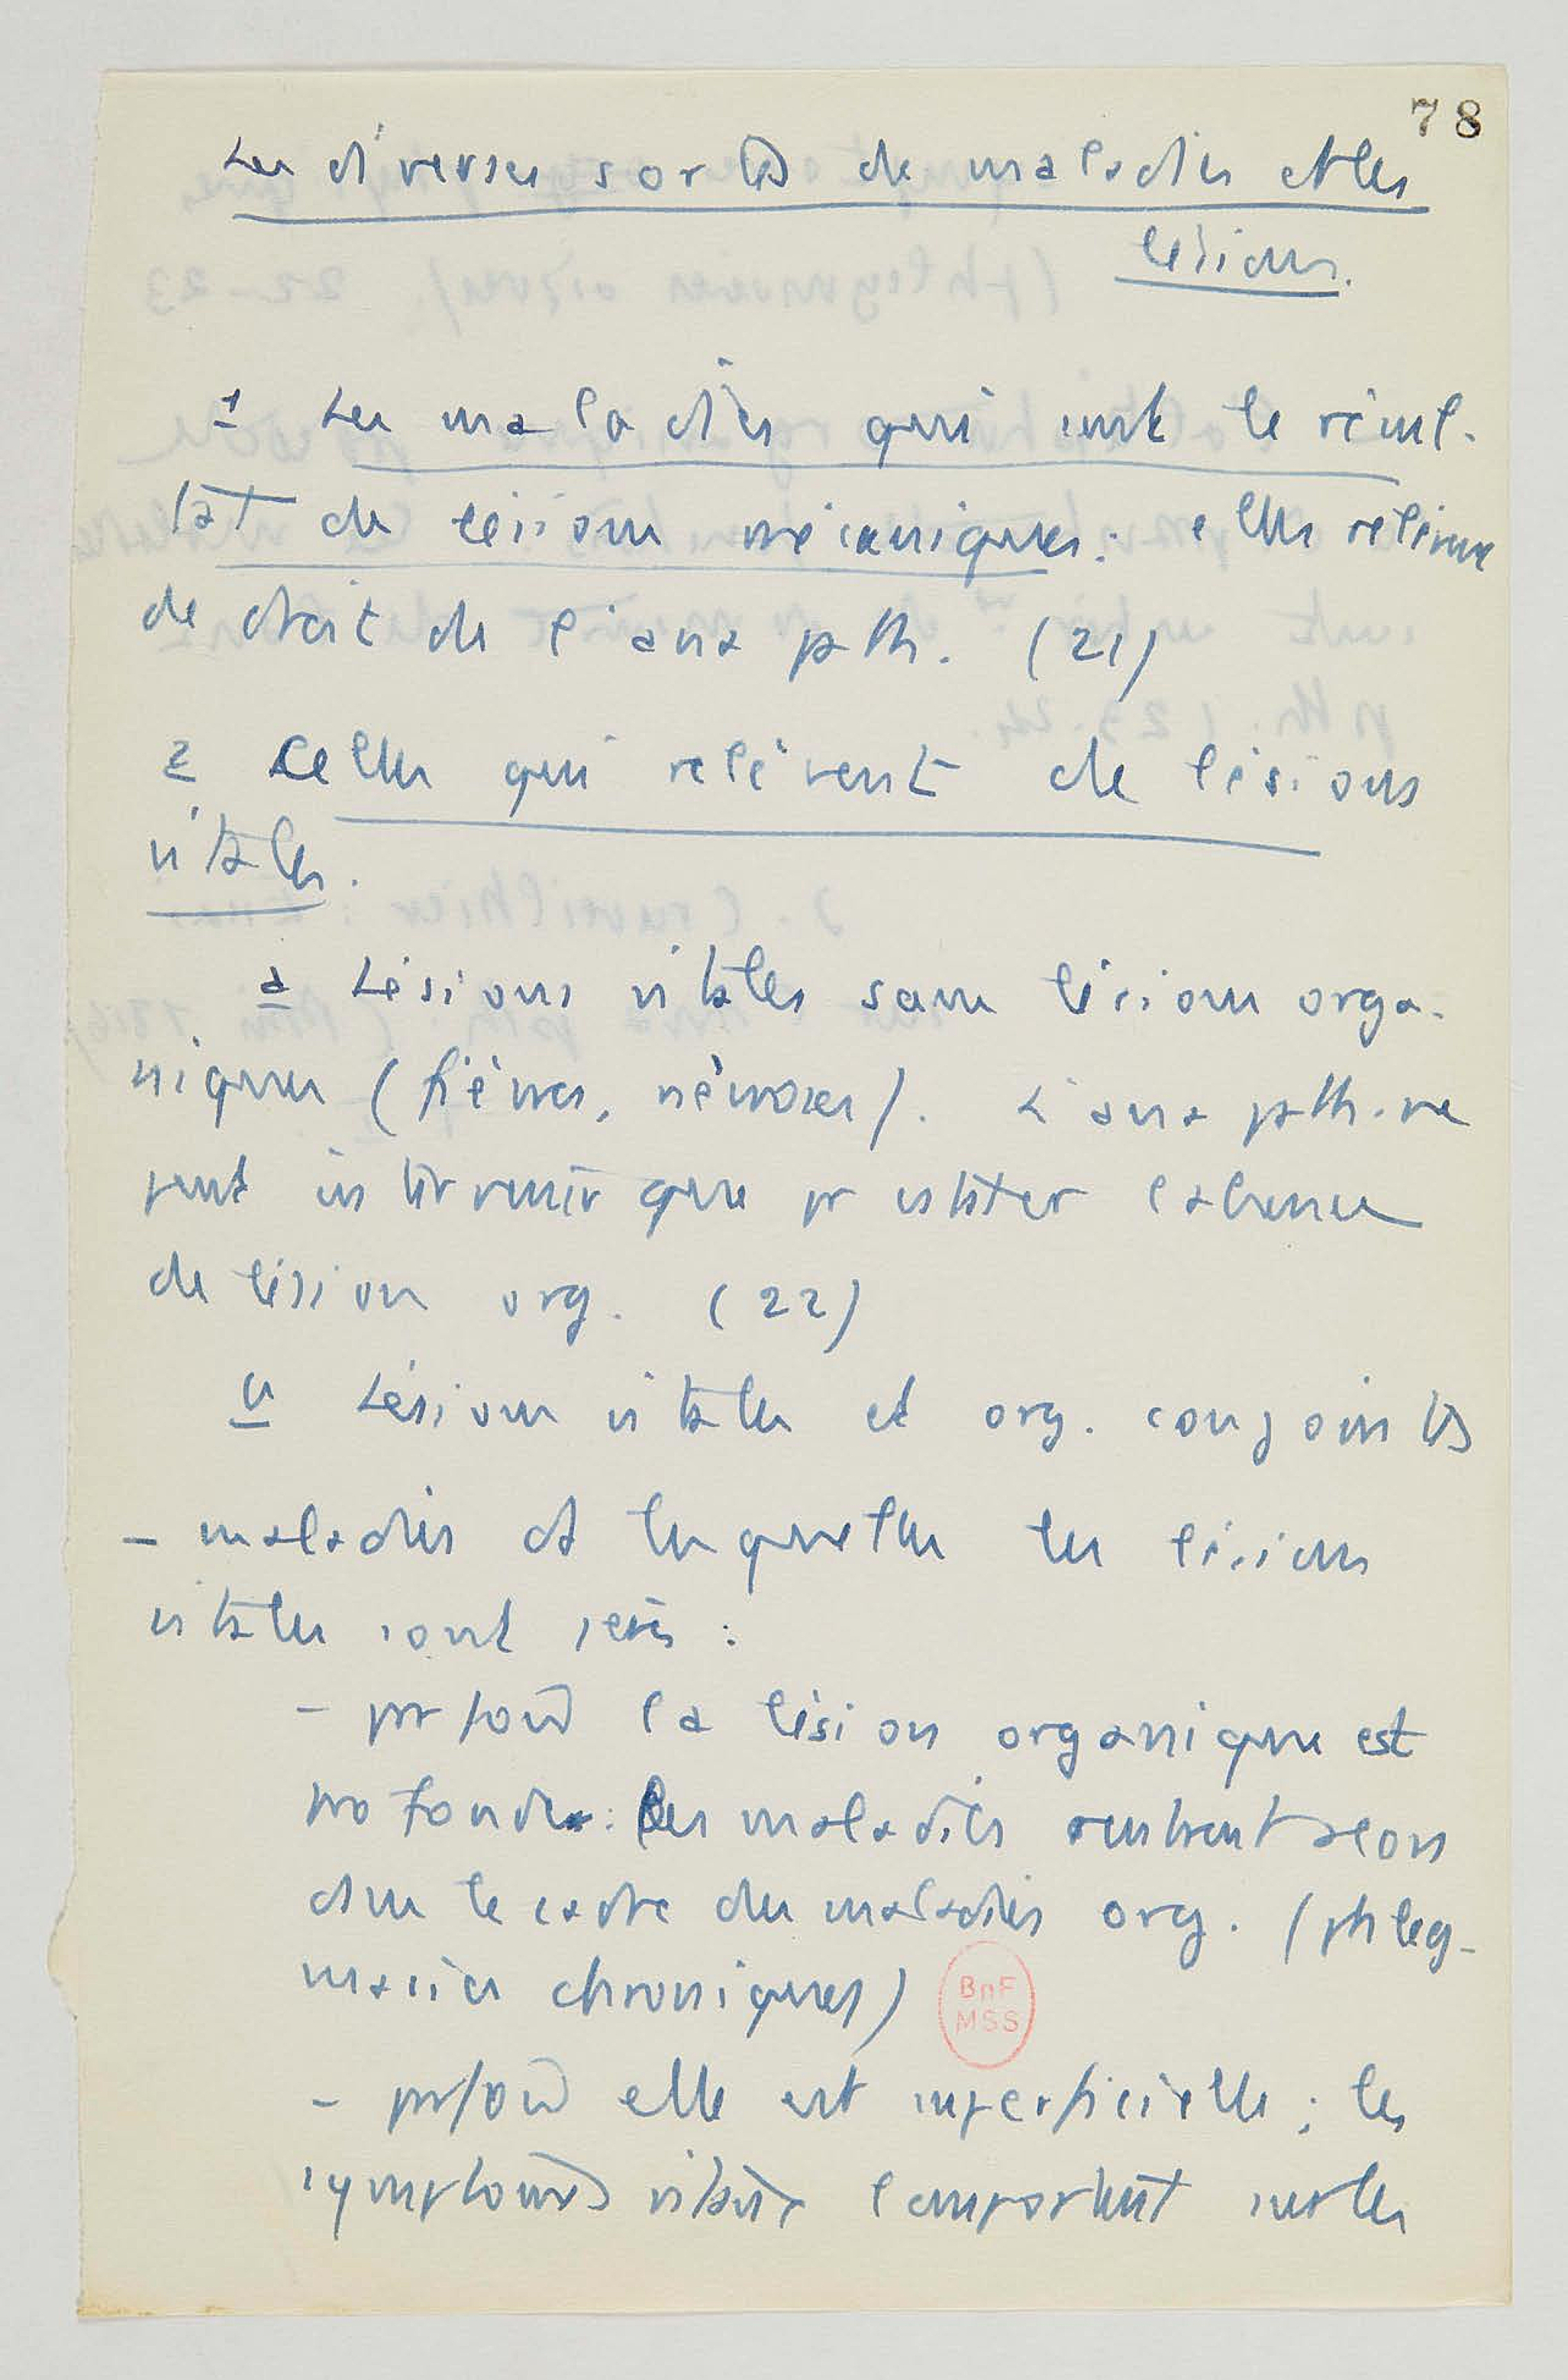 78
Les diverses sortes de maladies et les
lésions.
1 Les maladies qui sont le résul-
tat de lésions mécaniques: elles relèvent
de droit de l'ana path. (21)
2 Celles qui relèvent de lésions
vitales.
a Lésions vitales sans lésions orga-
niques (fièvres, névroses). L'ana path. ne
peut intervenir que pr constater l'absence
de lésion org. (22)
b Lésions vitales et org. conjointes
- maladies ds lesquelles les lésions
vitales sont
- pfois la lésion organique est
profonde: les maladies rentrent alors
dans le cadre des maladies org. (phleg-
masies chroniques)
BnF
MSS
- pfois elle est superficielle; les
symptômes vitaux l'emportent sur les